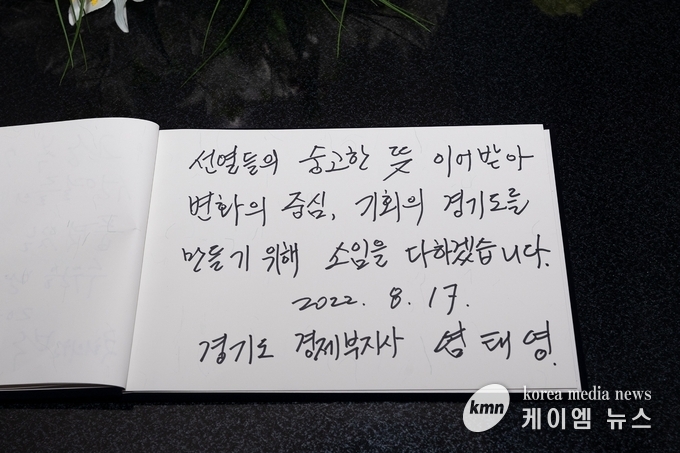 선열들의 숭고한 뜻 이어받아
변화의 중심, 기회의 경기도를
만들기 위해 소임을 다하겠습니다.
2022. 8. 17.
경기도 경제부지사 염태영.
kmn korea media news
케이엠 뉴스